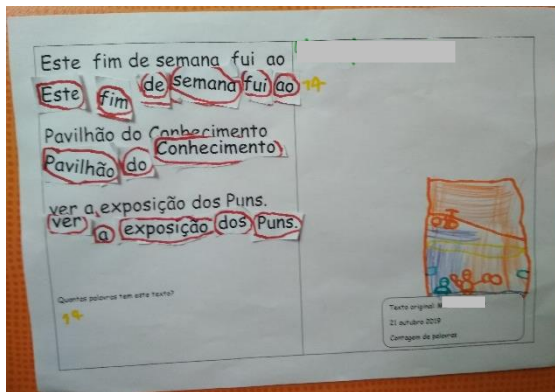 Este fim de semana fui ao
Este fim de semana fui ao 14
Pavilhão do Conhecimento
Pavilhão do Conhecimento
ver a exposição dos Puns.
ver a exposição dos Puns.
Quantas palavras tem este texto?
14
Texto original:
21 outubro 2019
Contagem de palavras